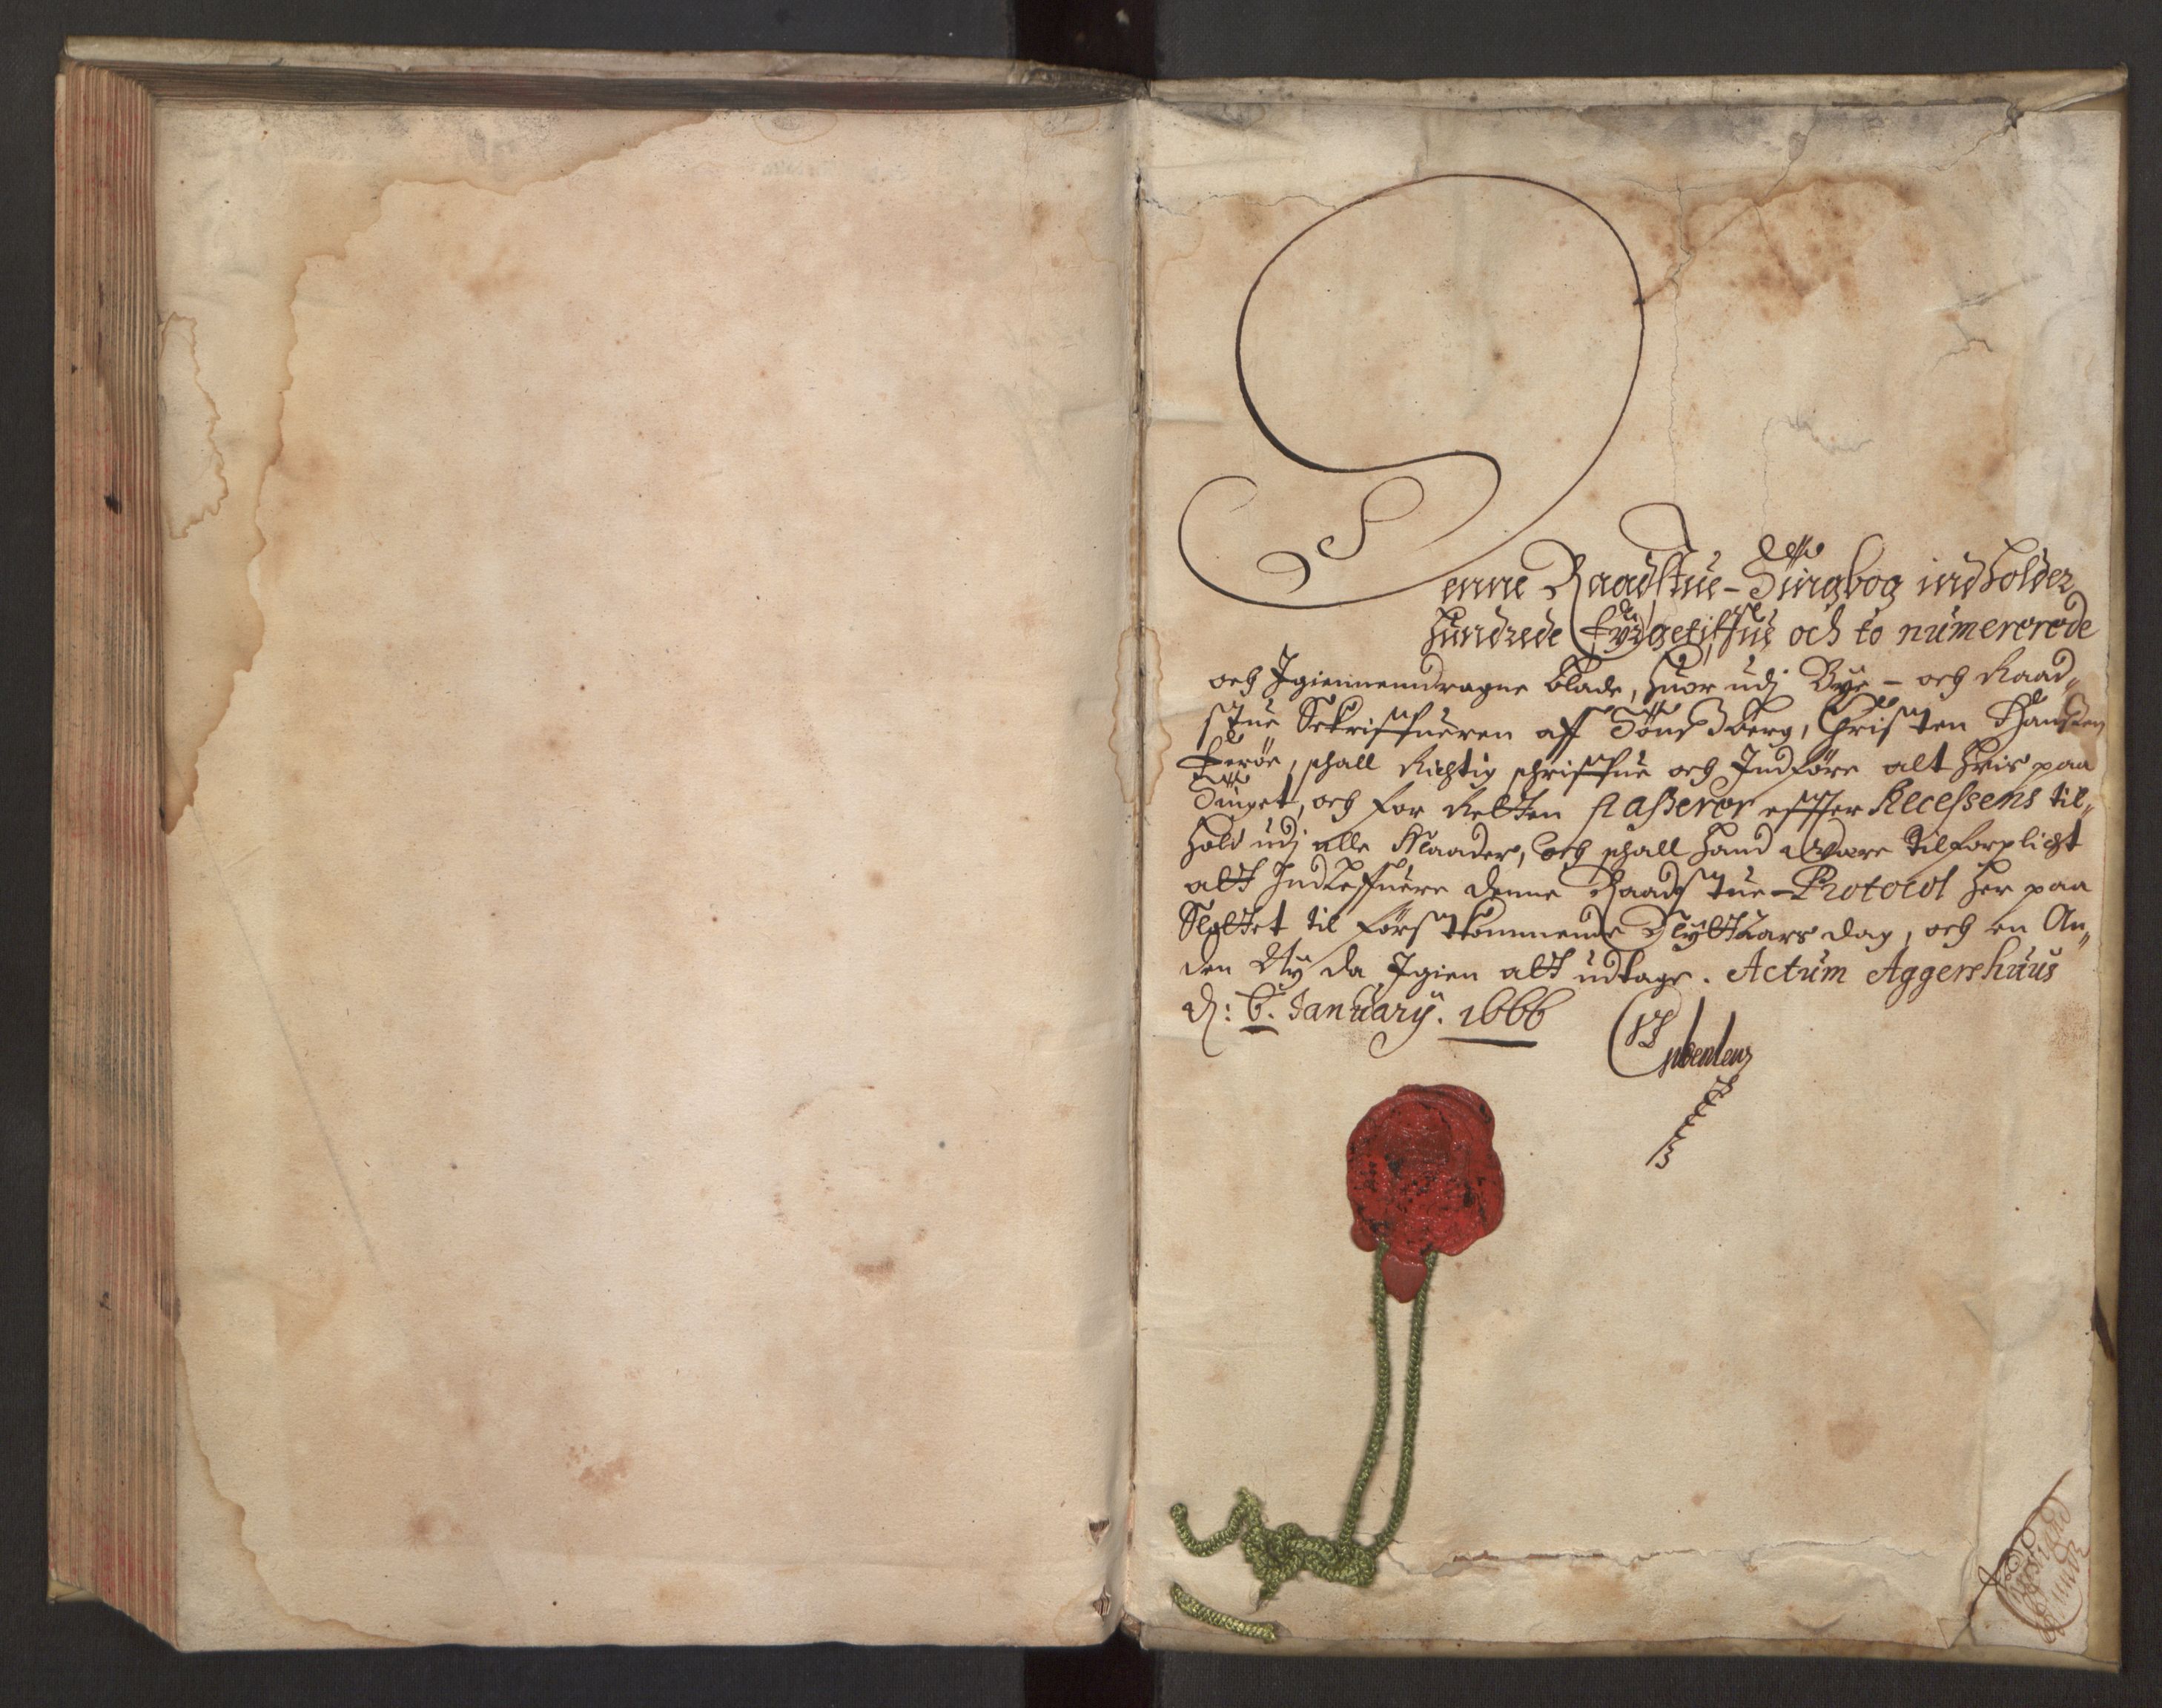 Denne Raadstue-Tingbog indholder
Hundrede Fyrgetiffue och to numererede
och Igiennemdragne blade, huor udj Bye- och Raad„
stue Schriffueren aff Tønsberg, Christen Hansen
Ferøe, schall Richtig schriffue och Indføre alt hvis paa
Tinget, och for Retten passerer effter Recessens til„
hold udj alle Maader, och schall hand være tilforplicht
att Indleffuere denne Raadstue-Protocol her paa
Slottet til førstkommende Nyttaars dag, och en An„
den Ny da Igien att udtage. Actum Aggershuus
d: 6. January. 1666